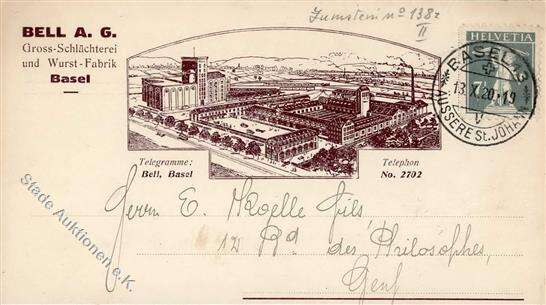 BELL A. G.
Gross-Schlächterei
und Wurst-Fabrik
Basel
Zumstein no 138z
II
HELVETIA
BASEL 3
13.X.20-19
V
ÄUSSERE St. JOHANN
Telegramme:
Bell, Basel
Telephon
No. 2702
Herrn E. Moelle Fils
12 Bd des Philosophes,
Genf
Stade Auktionen e.K.